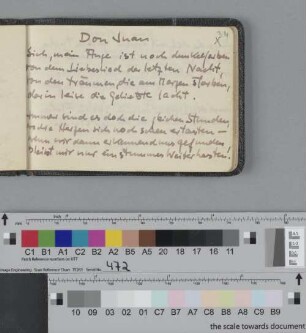 Don Juan
24
Sieh, mein Auge ist noch dunkelfarben
von dem Liebeslied der letzten Nacht,
von den Träumen, die am Morgen starben,
der in leise die Geliebte lacht.
Immer sind es doch die gleichen Stunden,
wo die Herzen sich noch scheu ertasten –
bleibt mir nur ein stummes Weiterhasten!
C1 B1 A1 C2 B2 A2 B5 A5 20 18 17 16 11
472
10 09 03 02 01 C7 B7 A7 C8 B8 A8 C9 B9
the scale towards document